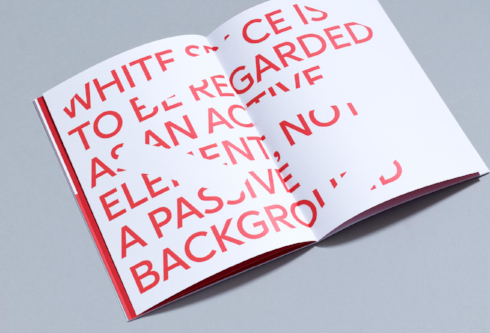 WHITE SPACE IS
TO BE REGARDED
AS AN ACTIVE
ELEMENT, NOT
A PASSIVE
BACKGROUND